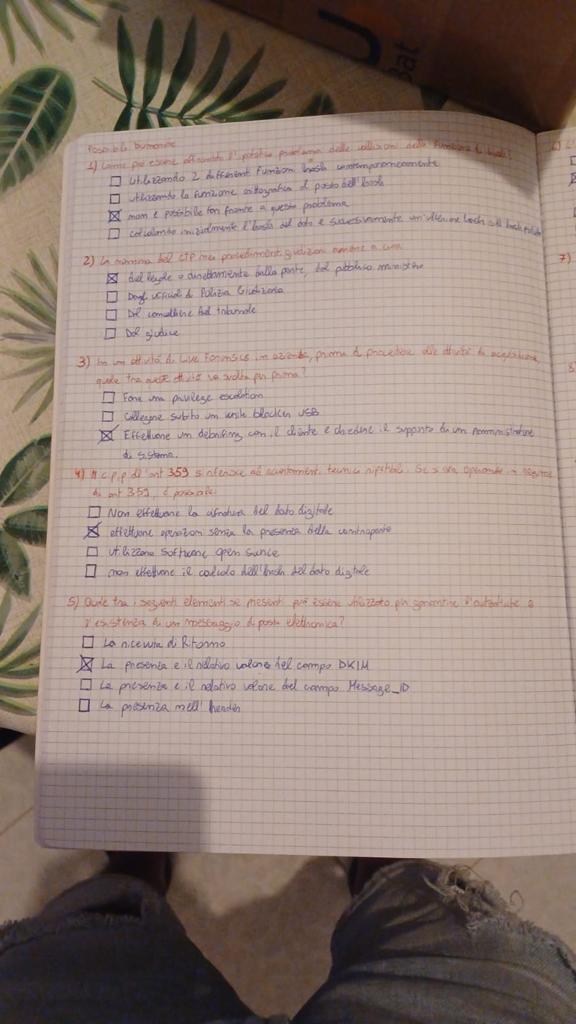 Bat
Possibili Domande
1) Come può essere affrontato l'ipotetico problema delle collisioni delle funzioni di hash?
Utilizzando 2 differenti funzioni hash contemporaneamente
utilizzando la funzione crittografica al posto dell'hash
non è possibile far fronte a questo problema
calcolando inizialmente l'hash del dato e successivamente un ulteriore hash
2) La nomina del CTP nei procedimenti giudiziari avviene a cura
del legale o direttamente dalla parte, dal pubblico ministero
Dagli ufficiali di Polizia Giudiziaria
Del cancelliere del tribunale
Dal giudice
3) In un attività di Live Forensics in azienda, prima di procedere alle attività di acquisizione,
quale tra queste attività va svolta per prima?
Fare una privilege escalation
Collegare subito un write blocker USB
Effettuare un debriefing con il cliente e chiedere il supporto di un amministratore
di sistema.
4) Il c.p.p all'art 359 si riferisce ad accertamenti tecnici ripetibili. Se si sta operando in
di art 359, è possibile:
Non effettuare la copia del dato digitale
effettuare operazioni senza la presenza della controparte
utilizzare software open source
non effettuare il calcolo dell'hash del dato digitale
5) Quale tra i seguenti elementi se presenti può essere utilizzato per garantire l'autenticità e
l'esistenza di un messaggio di posta elettronica?
La ricevuta di Ritorno
La presenza e il relativo valore del campo DKIM
La presenza e il relativo valore del campo Message_ID
La presenza nell'header
7)